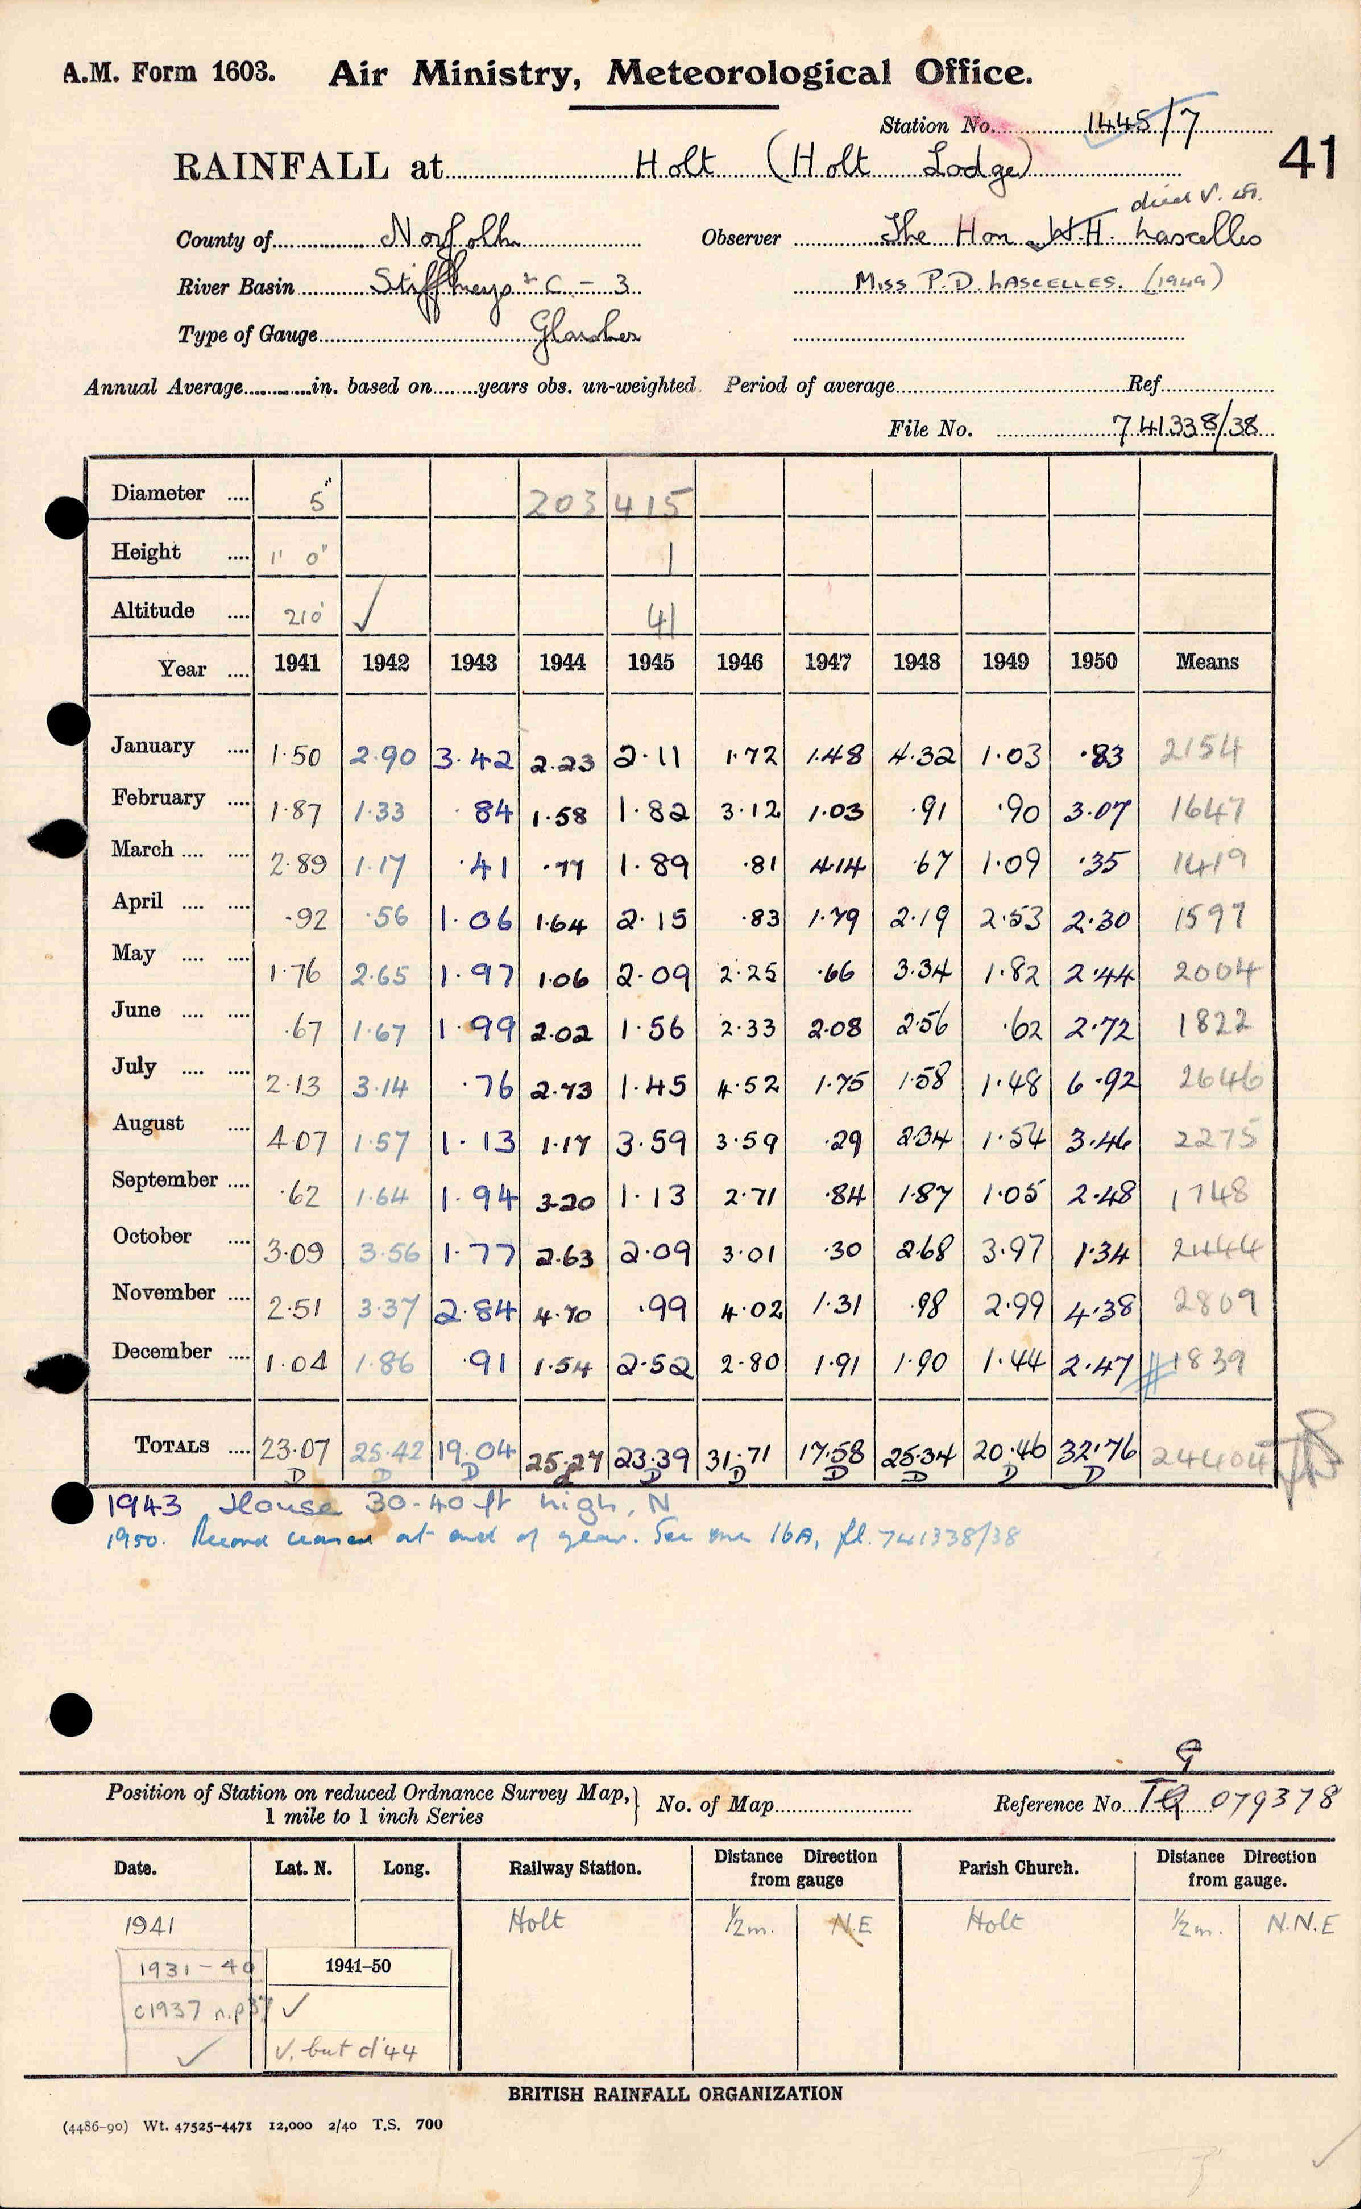 A.M. Form 1603. Air Ministry, Meteorological Office.
Station No. 1445/7
41
RAINFALL at Holt (Holt Lodge)
died
County of Norfolk Observer The Hon W.H. Lascelles
River Basin Stiffkeys & C. - 3 Miss P.D. LASCELLES. (1949)
Type of Gauge Glaisher
Annual Average in. based on years obs. un-weighted Period of average Ref.
File No. 741338/38
Diameter 5" 203 415
Height 1' 0" 1
Altitude 210' ✓ 41
Year 1941 1942 1943 1944 1945 1946 1947 1948 1949 1950 Means
January 1·50 2·90 3·42 2·23 2·11 1·72 1·48 4·32 1·03 ·83 2154
February 1·87 1·33 ·84 1·58 1·82 3·12 1·03 ·91 ·90 3·07 1647
March 2·89 1·17 ·41 ·77 1·89 ·81 4·14 ·67 1·09 ·35 1419
April ·92 ·56 1·06 1·64 2·15 ·83 1·79 2·19 2·53 2·30 1597
May 1·76 2·65 1·97 1·06 2·09 2·25 ·66 3·34 1·82 2·44 2004
June ·67 1·67 1·99 2·02 1·56 2·33 2·08 2·56 ·62 2·72 1822
July 2·13 3·14 ·76 2·73 1·45 4·52 1·75 1·58 1·48 6·92 2646
August 4·07 1·57 1·13 1·17 3·59 3·59 ·29 2·34 1·54 3·46 2275
September ·62 1·64 1·94 3·20 1·13 2·71 ·84 1·87 1·05 2·48 1748
October 3·09 3·56 1·77 2·63 2·09 3·01 ·30 2·68 3·97 1·34 2444
November 2·51 3·37 2·84 4·70 ·99 4·02 1·31 ·98 2·99 4·38 2809
December 1·04 1·86 ·91 1·54 2·52 2·80 1·91 1·90 1·44 2·47 1839
TOTALS 23·07 25·42 19·04 25·27 23·39 31·71 17·58 25·34 20·46 32·76 24404
D D D D D D D D D
1943 House 30-40 ft high, N
1950. Record ceased at end of year. See enc 16A, fl. 741338/38
Position of Station on reduced Ordnance Survey Map, 1 mile to 1 inch Series
No. of Map Reference No. TG 079378
Date. Lat. N. Long. Railway Station. Distance Direction from gauge Parish Church. Distance Direction from gauge.
1941 Holt ½m. N.E Holt ½m. N.N.E
1931-40 1941-50
c1937 n.p 37 ✓
✓ v. but d'44
BRITISH RAINFALL ORGANIZATION
(4486-90) Wt. 47525-4471 12,000 2/40 T.S. 700